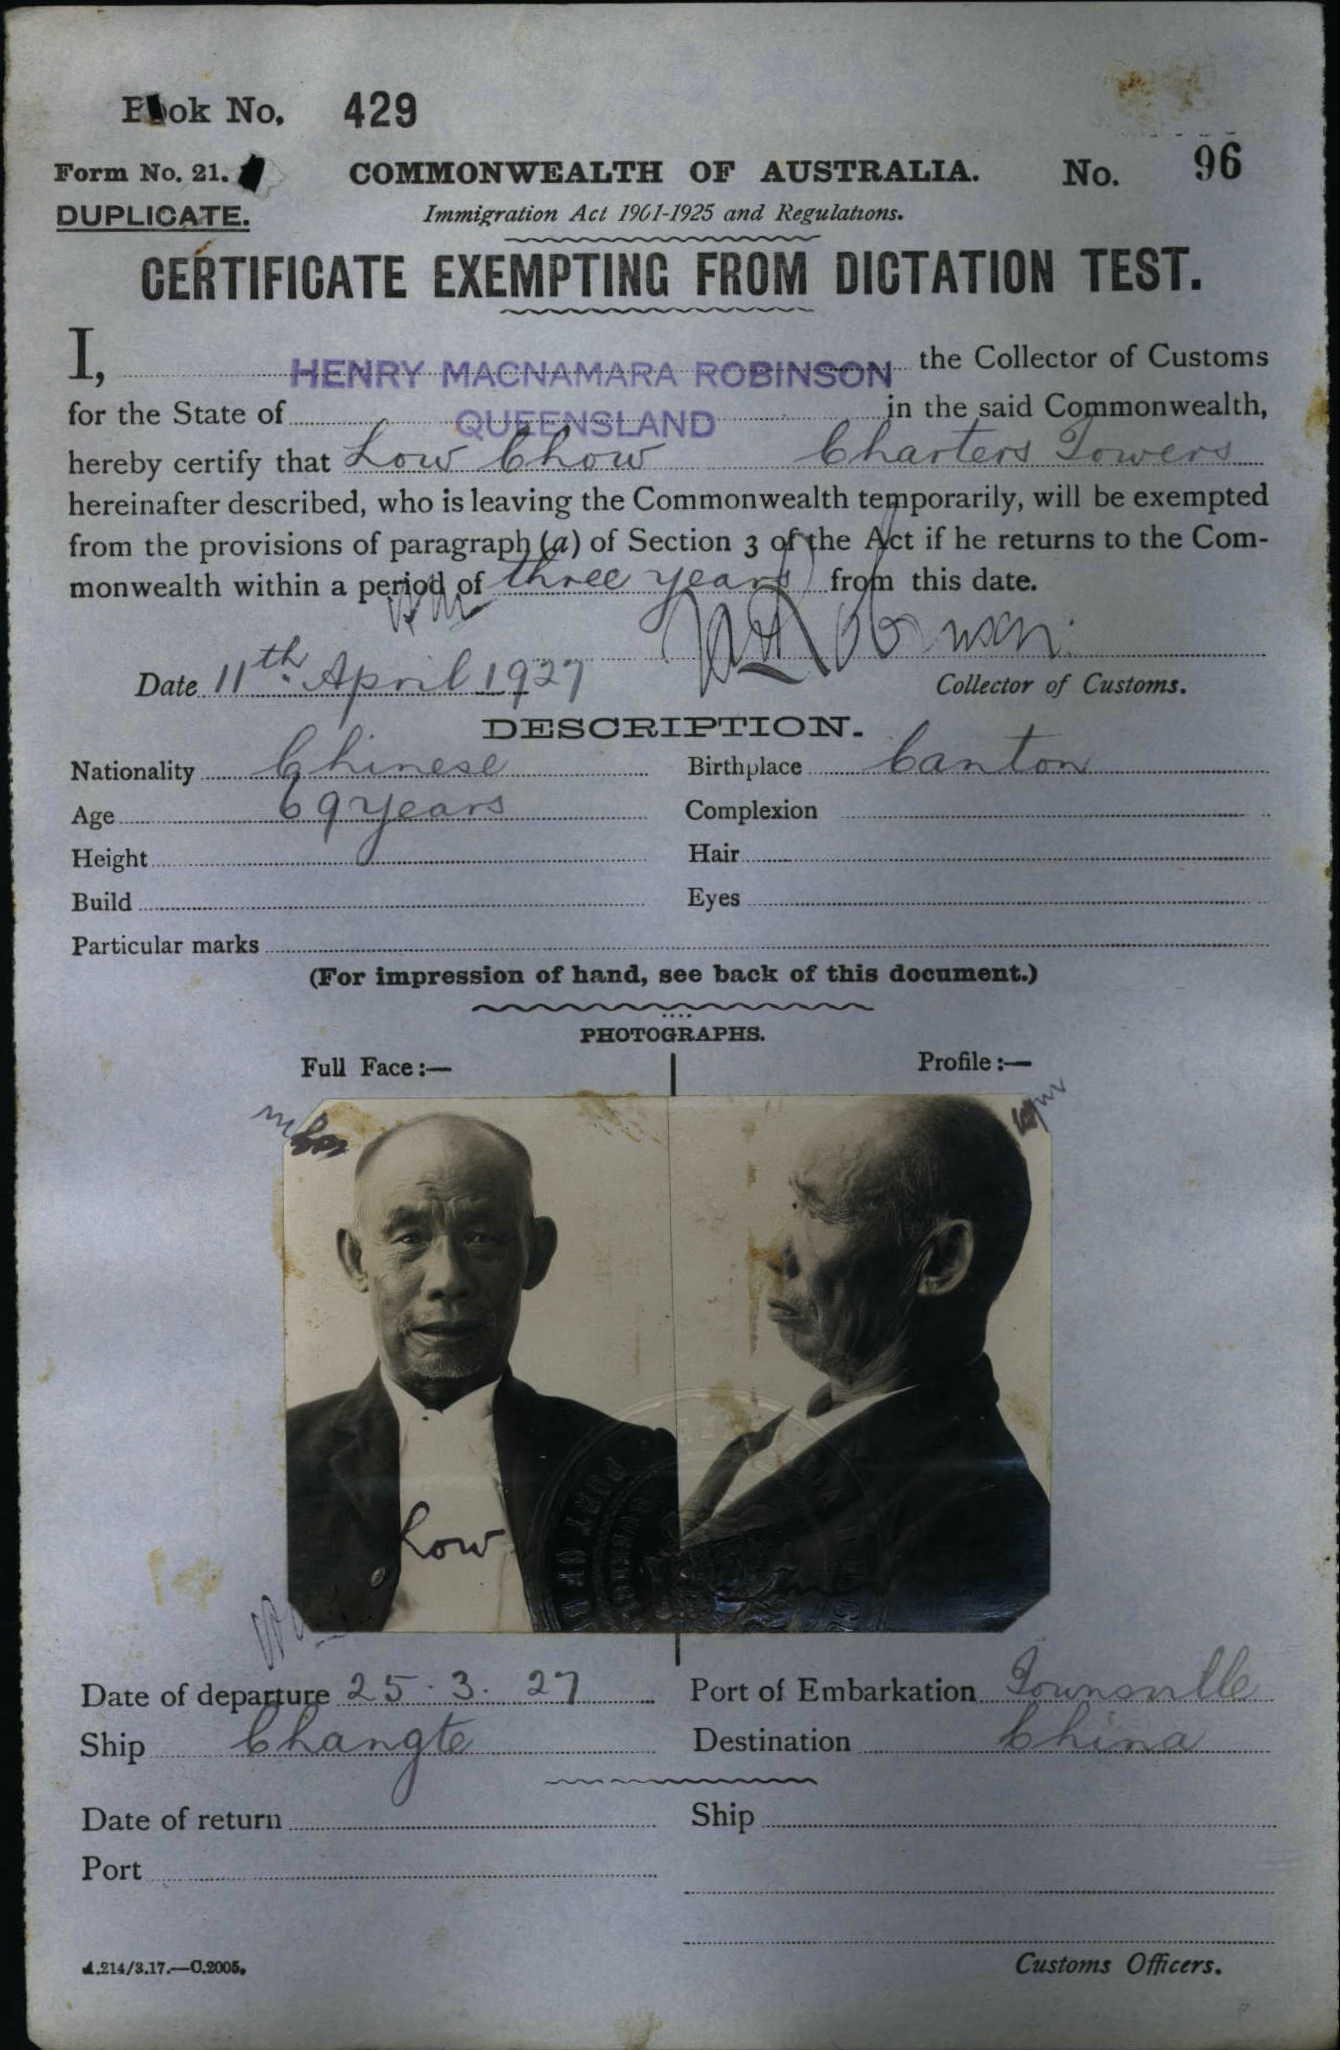 Book No. 429
Form No. 21.
COMMONWEALTH OF AUSTRALIA.
No. 96
DUPLICATE.
Immigration Act 1901-1925 and Regulations.
CERTIFICATE EXEMPTING FROM DICTATION TEST.
I, HENRY MACNAMARA ROBINSON the Collector of Customs
for the State of QUEENSLAND in the said Commonwealth,
hereby certify that Low Chow Charters Towers
hereinafter described, who is leaving the Commonwealth temporarily, will be exempted
from the provisions of paragraph (a) of Section 3 of the Act if he returns to the Com-
monwealth within a period of three years from this date.
Date 11th April 1927
Collector of Customs.
DESCRIPTION.
Nationality Chinese Birthplace Canton
Age 69 years Complexion
Height Hair
Build Eyes
Particular marks
(For impression of hand, see back of this document.)
PHOTOGRAPHS.
Full Face:— Profile:—
Low
Date of departure 25.3.27 Port of Embarkation Townsville
Ship Changte Destination China
Date of return Ship
Port
A.214/3.17.—C.2005. Customs Officers.